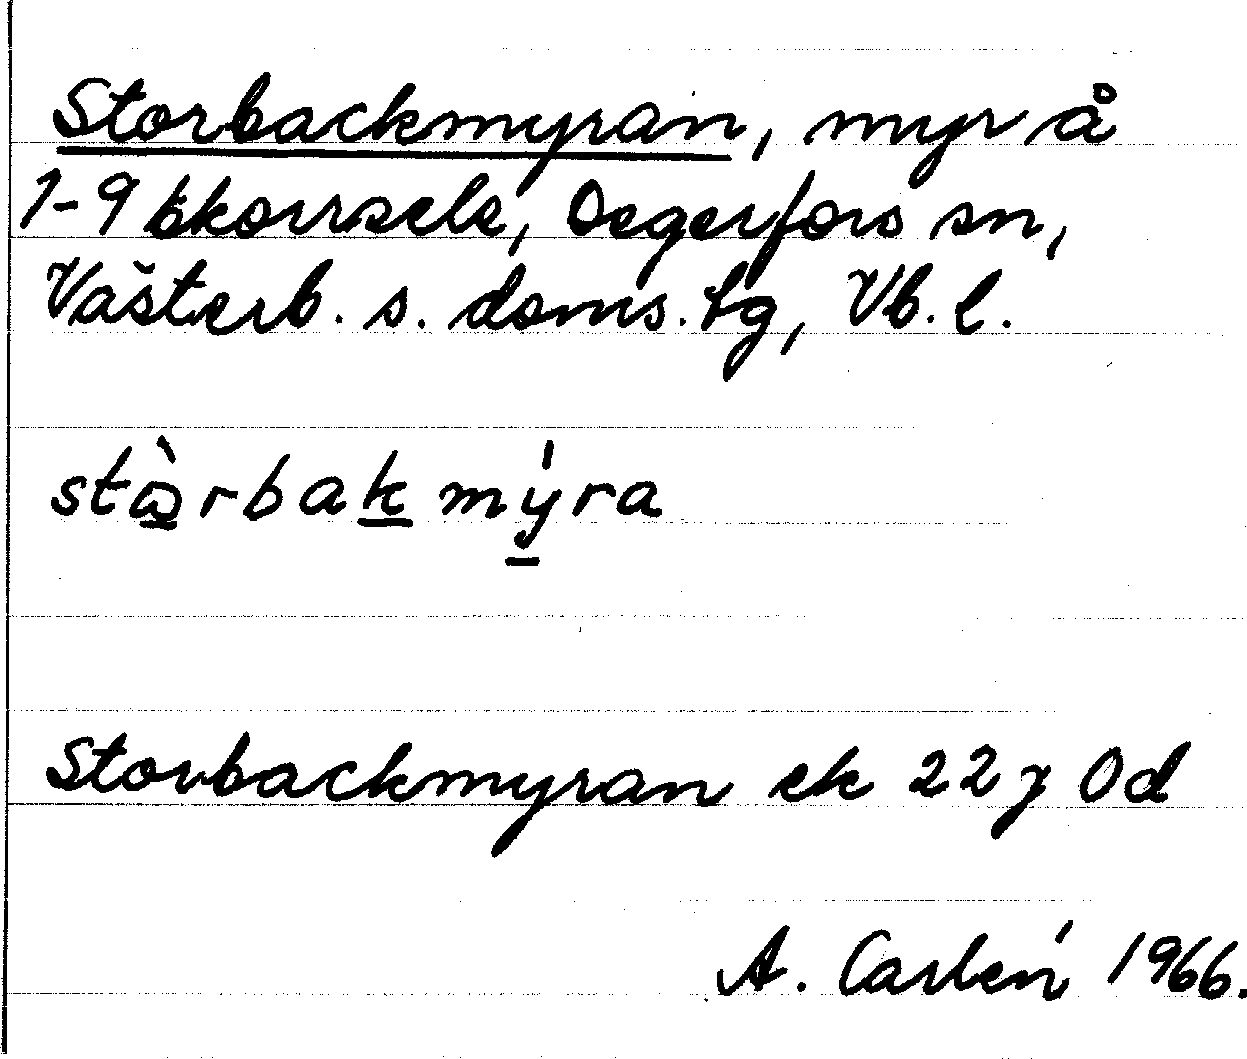 Storbackmyran, myr å
1-9 Ekorrsele, Degerfors sn,
Västerb. s. doms. tg, Vb. l.
stɷ̀rbak mýra
Storbackmyran ek 22 j 0 d
A. Carlén 1966.